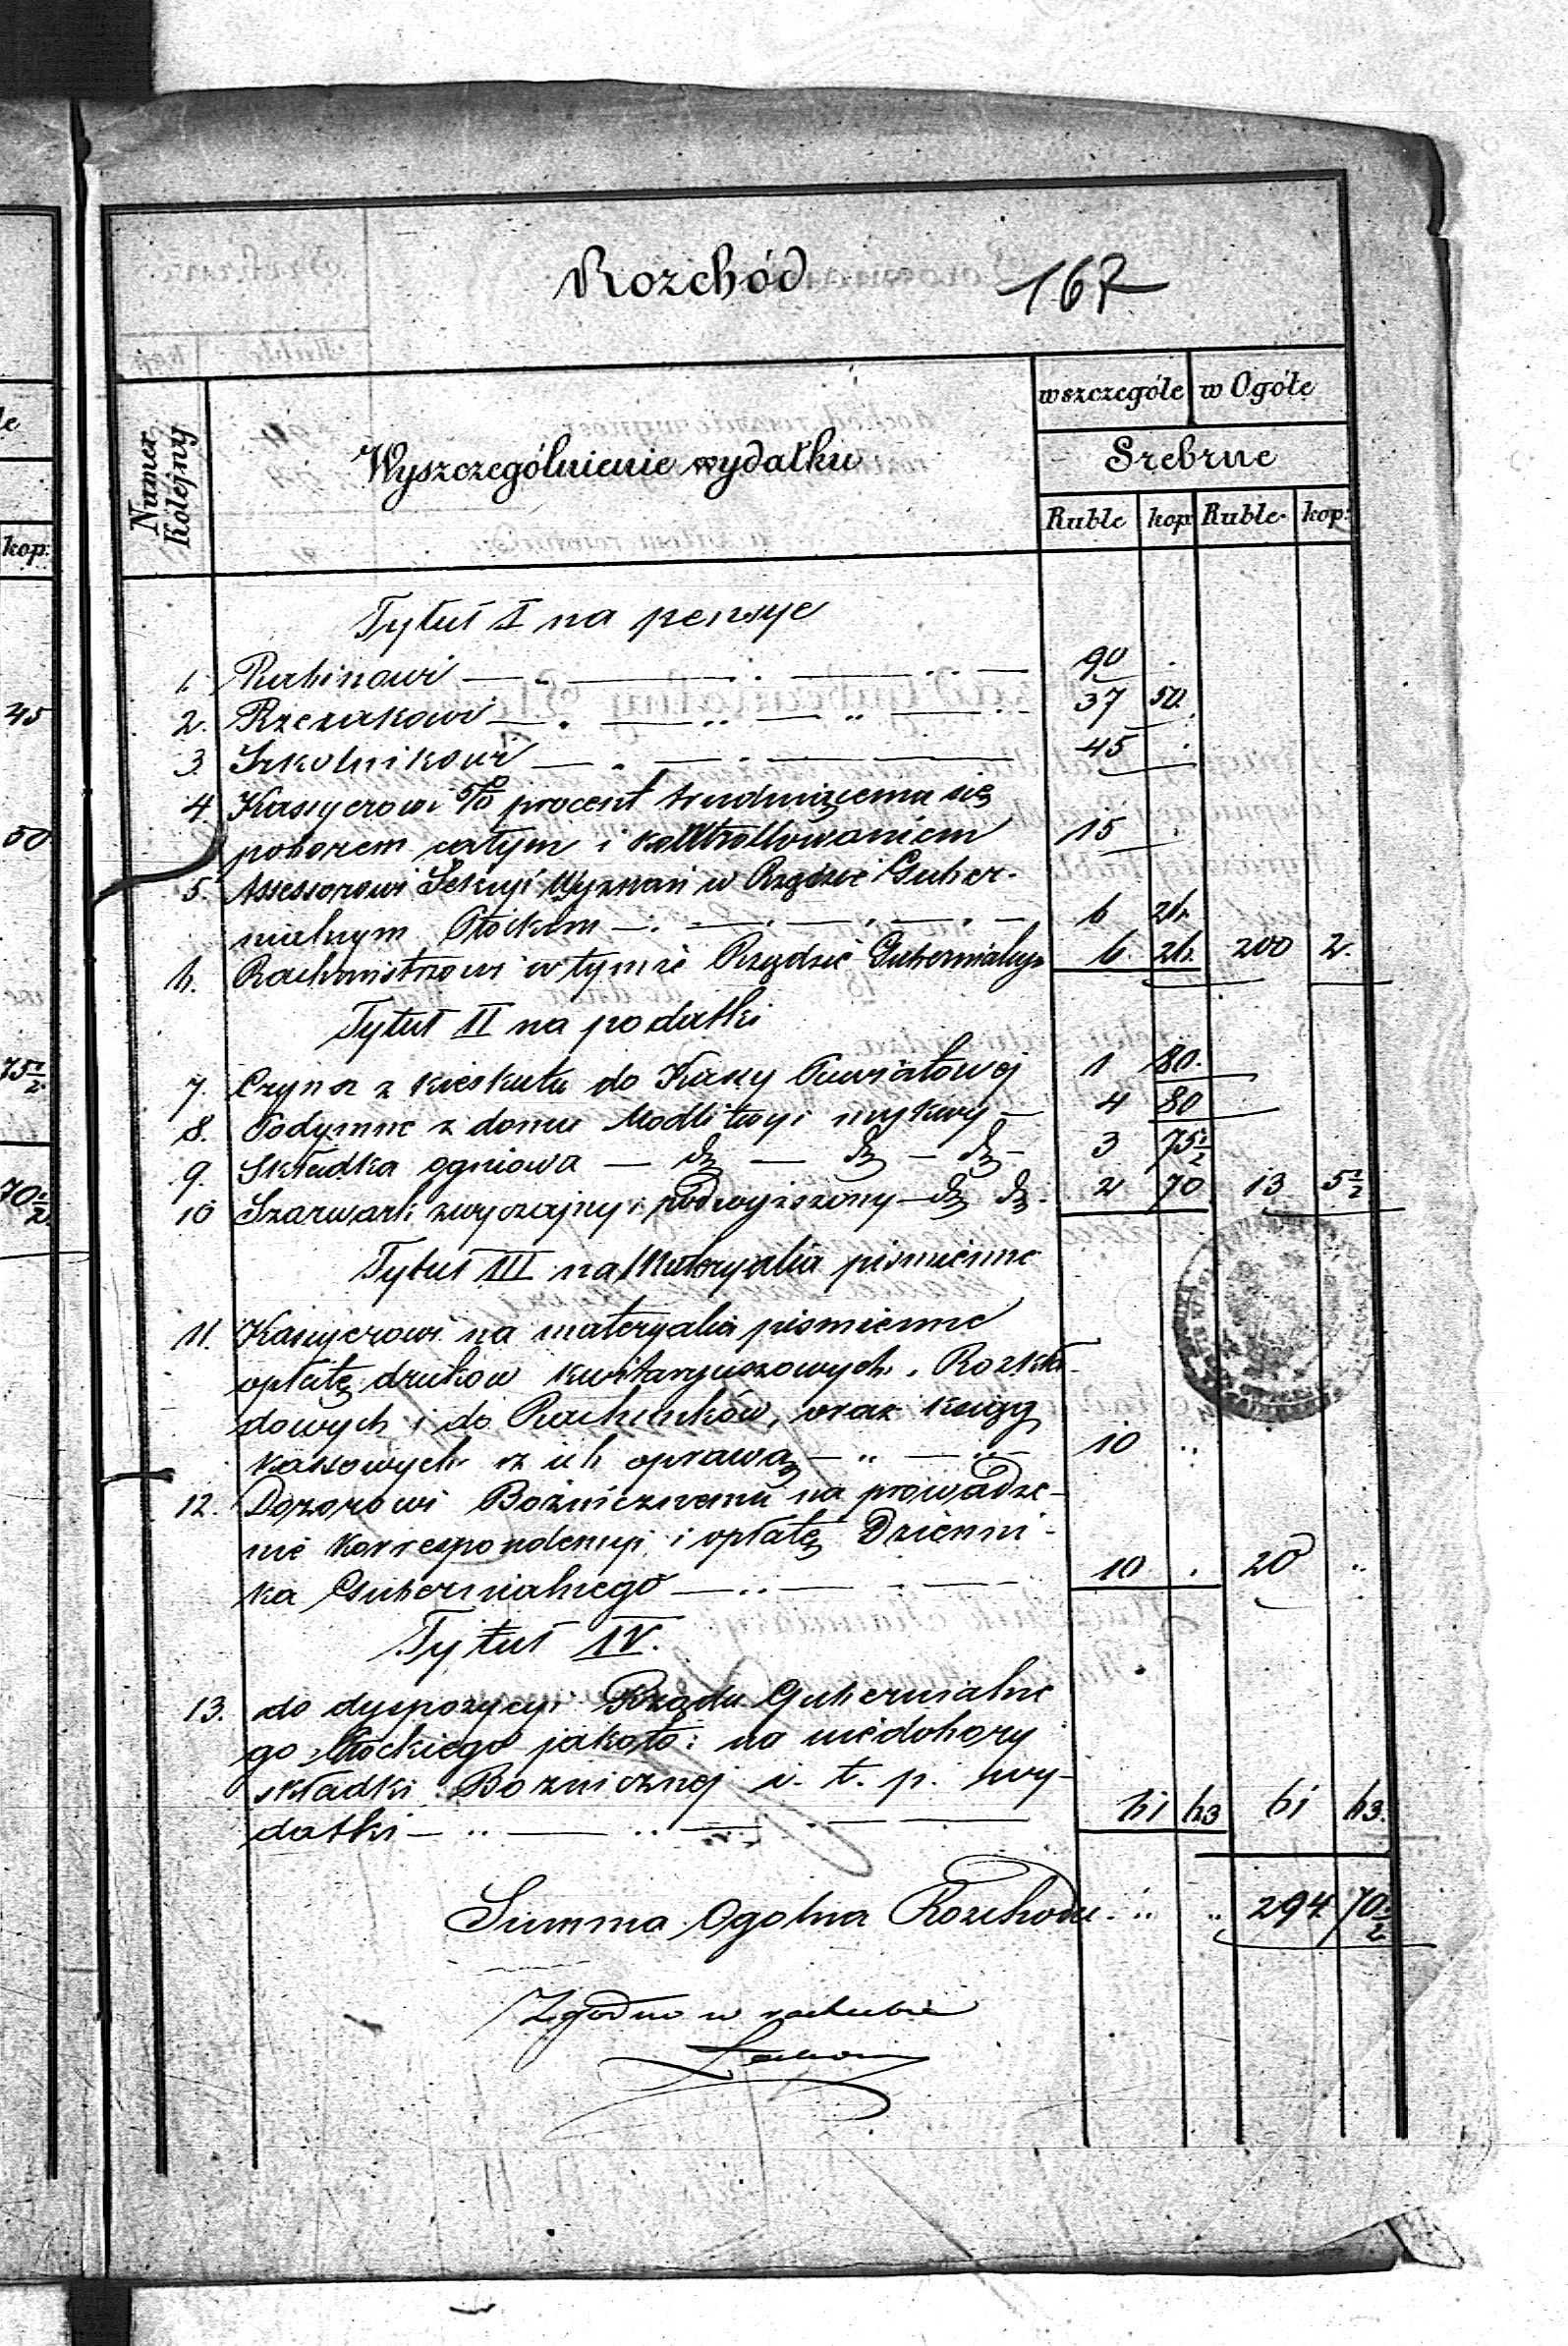 Rozchód 167
Numer Kolejny
Wyszczególnienie wydatku
w szczególe w Ogóle
Srebrne
Ruble kop: Ruble kop:
Tytuł I na pensye
1. Rabinowi 90 .
2. Rzezakowi 37 50.
3. Szkolnikowi 45 .
4 Kassyerowi 5/0 procent trudniącemu się
poborem całym i kontrollowaniem 15 .
5. Assessorowi Sekcyi Wyznań w Rządzie Guber-
nialnym Płockim 6 26.
6. Rachmistrzowi w tymże Rządzie Gubernialnym 6. 26. 200 2.
Tytuł II na podatki
7. Czynsz z kieskutu do Kassy Powiatowej 1 80.
8. Podymne z domu Modlitwy i mykwy 4 80
9. Składka ogniowa — dto — dto — dto 3 75 1/2
10 Szarwark zwyczajny i podwyższony — dto dto 2 70 13 5 1/2
Tytuł III na Materyalia piśmienne
11. Kassyerowi na materyalia piśmienne
opłatę druków kwitaryuszowych, Rozkła-
dowych i do Rachunków, oraz ksiąg
kassowych z ich oprawą 10 ..
12. Dozorowi Bóżnicznemu na prowadze-
nie korrespondencyi i opłatę Dzienni-
ka Gubernialnego 10 . 20 ..
Tytuł IV.
13. do dyspozycyi Rządu Gubernialne
go Płockiego jakoto: na niedobory
składki Bożnicznej i. t. p. wy-
datki 61 63 61 63.
Summa Ogólna Rozchodu .. .. 294 70 1/2
Zgodno w rachubie
le
kop:
45
50
75 1/2
70 1/2